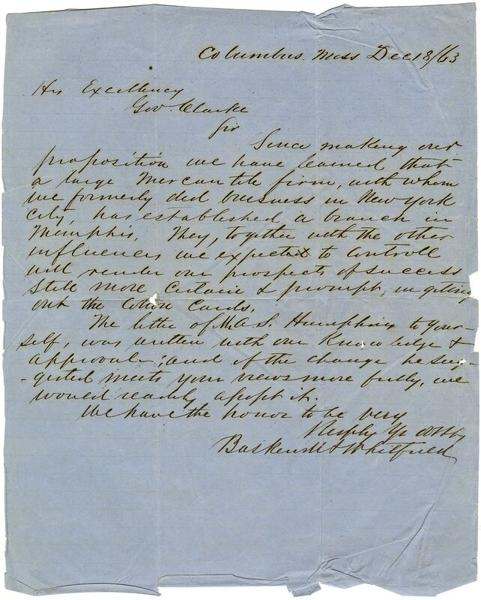 Columbus, Miss Dec 18/63
His Excellency
Gov. Clarke
Sir
Since making our
proposition we have learned that
a large Mercantile firm, with whom
we formerly did business in New York
City, has established a branch in
Memphis. They, together with the other
influences we expected to controll
will render our prospects of success
still more certain & prompt, in getting
out the Cotton Cards.
The letter of Humphries to your-
self, was written with our Knowledge &
approval; and if the change he sug-
-gested meets your views more fully, we
would readily adopt it.
We have the honor to be very
Respfly Yr Obt
Baskerville & Whitfield